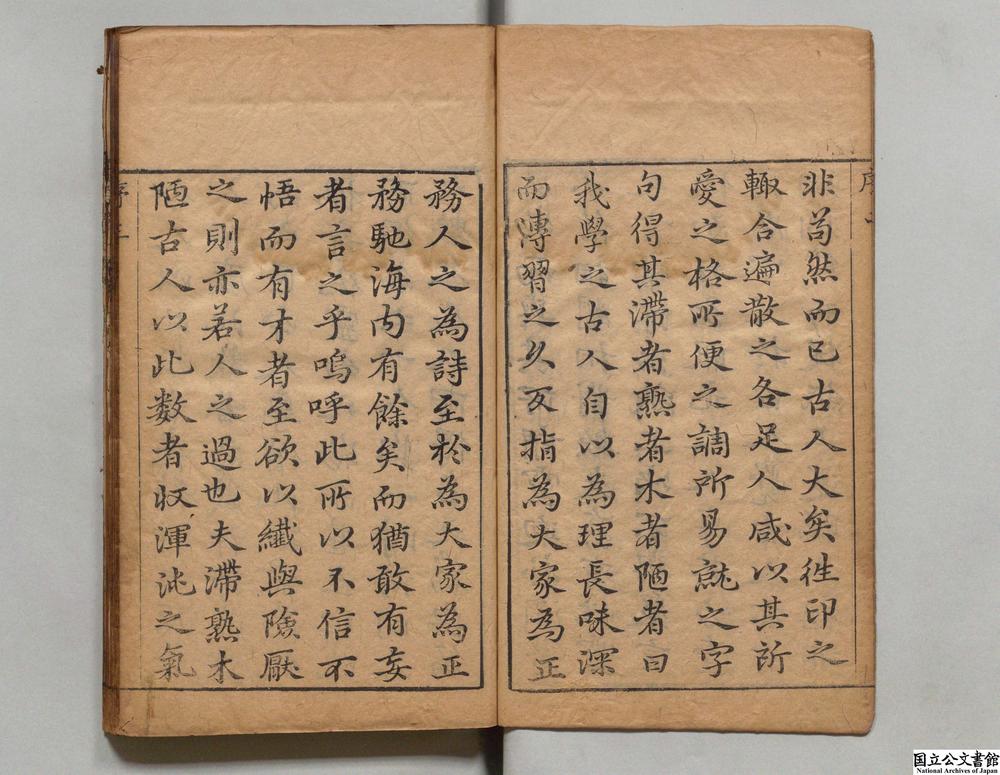 非苟然而已古人大矣徃印之
輙合遍散之各足人咸以其所
愛之格所便之調所易就之字
句得其滯者熟者木者陋者曰
我學之古人自以為理長味深
而傳習之久反指為大家為正
務人之為詩至於為大家為正
務馳海內有餘矣而猶敢有妄
者言之乎嗚呼此所以不信不
悟而有才者至欲以纖與險厭
之則亦若人之過也夫滯熟木
陋古人以此數者収渾沌之氣
序
国立公文書館
National Archives of Japan